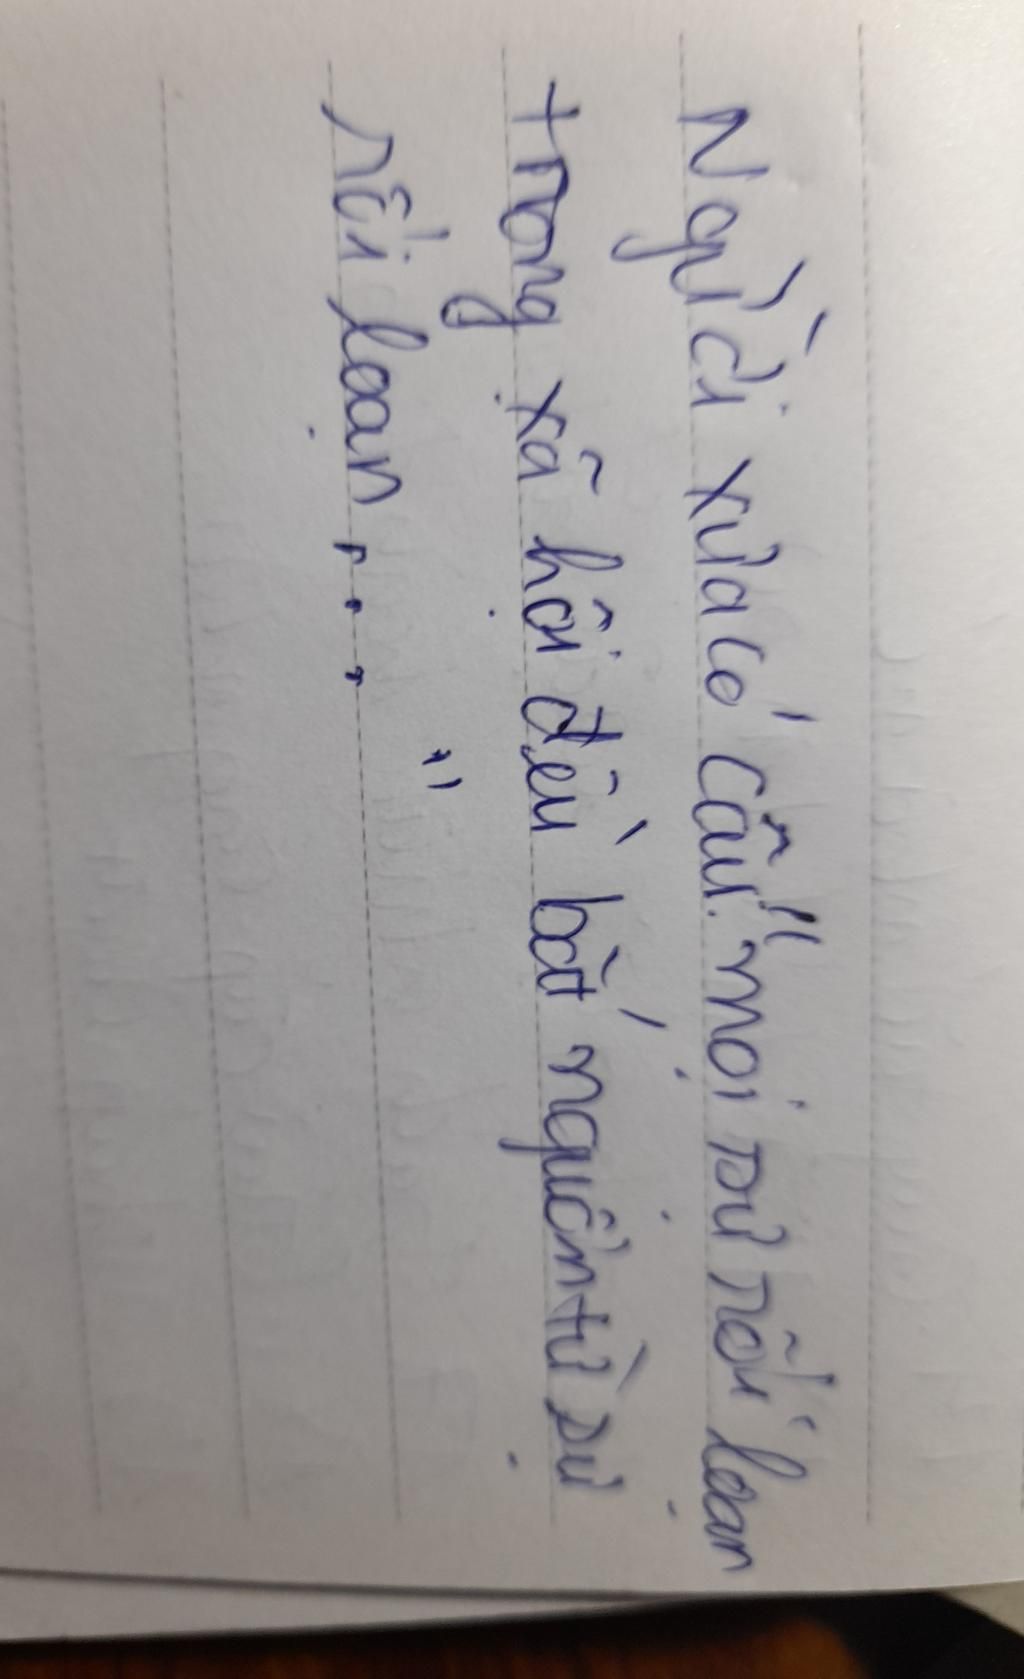 Người xưa có câu: "mọi sự rối loạn
trong xã hội đều bắt nguồn từ sự
rối loạn . . . "